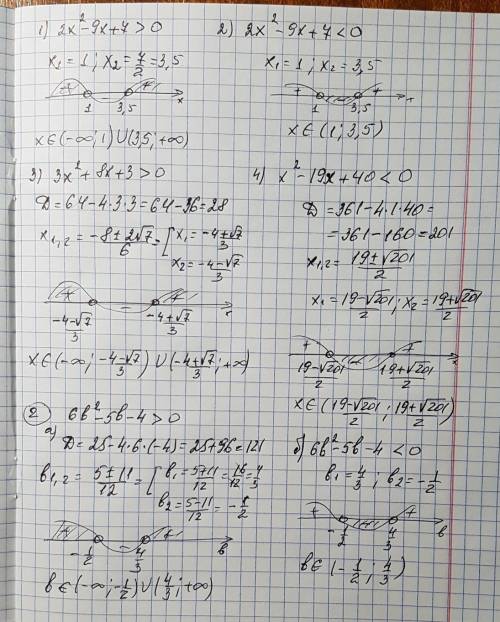 1) 2x²-9x+7>0
x₁=1; x₂=7/2=3,5
+ - + x
1 3,5
x∈(-∞;1)∪(3,5;+∞)
2) 2x²-9x+7<0
x₁=1; x₂=3,5
+ - + x
1 3,5
x∈(1;3,5)
3) 3x²+8x+3>0
D=64-4·3·3=64-36=28
x₁,₂=(-8±2√7)/6=[x₁=(-4+√7)/3
x₂=(-4-√7)/3
+ - + x
(-4-√7)/3 (-4+√7)/3
x∈(-∞;(-4-√7)/3)∪((-4+√7)/3;+∞)
4) x²-19x+40<0
D=361-4·1·40=
=361-160=201
x₁,₂=(19±√201)/2
x₁=(19-√201)/2; x₂=(19+√201)/2
+ - + x
(19-√201)/2 (19+√201)/2
x∈((19-√201)/2;(19+√201)/2)
2 6b²-5b-4>0
а)
D=25-4·6·(-4)=25+96=121
b₁,₂=(5±11)/12=[b₁=(5+11)/12=16/12=4/3
b₂=(5-11)/12=-1/2
+ - + b
-1/2 4/3
b∈(-∞;-1/2)∪(4/3;+∞)
б) 6b²-5b-4<0
b₁=4/3; b₂=-1/2
+ - + b
-1/2 4/3
b∈(-1/2;4/3)